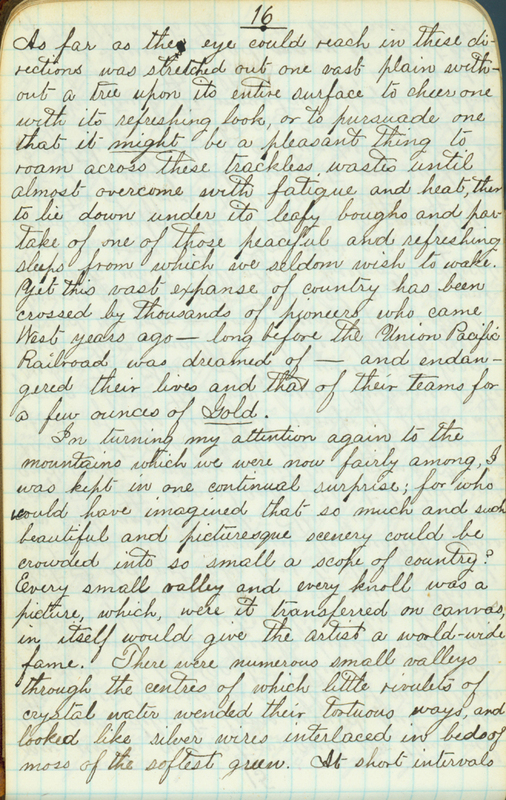 16
As far as the eye could reach in these di-
rections was stretched out one vast plain with-
out a tree upon its entire surface to cheer one
with its refreshing look, or to pursuade one
that it might be a pleasant thing to
roam across these trackless wastes until
almost overcome with fatigue and heat, then
to lie down under its leafy boughs and par-
take of one of those peaceful and refreshing
sleeps from which we seldom wish to wake.
Yet this vast expanse of country has been
crossed by thousands of pioneers who came
West years ago — long before the Union Pacific
Railroad was dreamed of — and endan-
gered their lives and that of their teams for
a few ounces of Gold.
In turning my attention again to the
mountains which we were now fairly among, I
was kept in one continual surprise; for who
would have imagined that so much and such
beautiful and picturesque scenery could be
crowded into so small a scope of country?
Every small valley and every knoll was a
picture, which, were it transferred on canvas,
in itself would give the artist a world-wide
fame. There were numerous small valleys
through the centres of which little rivulets of
crystal water wended their tortuous ways, and
looked like silver wires interlaced in beds of
moss of the softest green. At short intervals